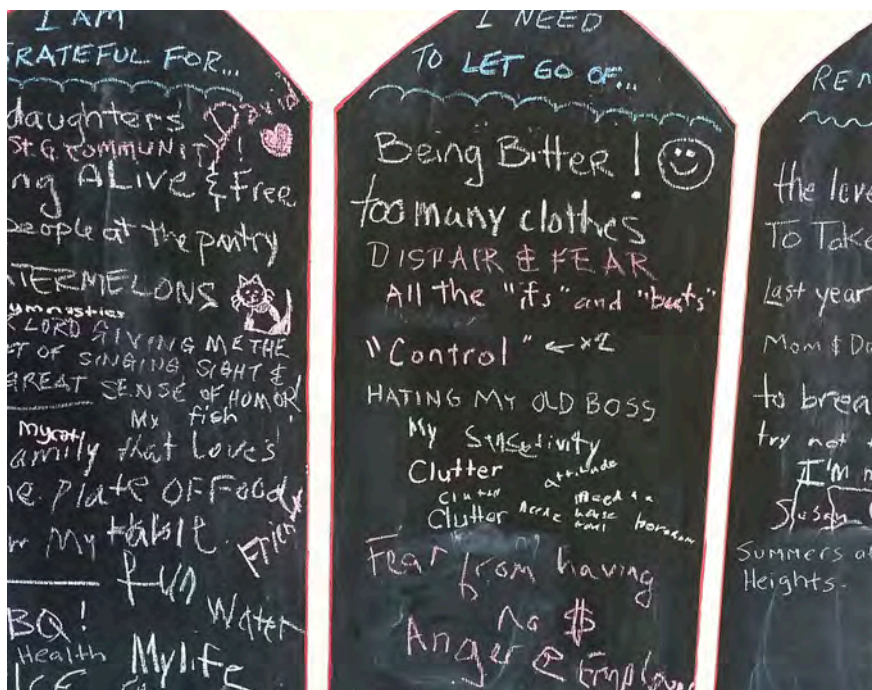 I AM
GRATEFUL FOR...
daughters
David
St. G. COMMUNITY!
ng ALive & Free
people at the pantry
ATERMELONS
gymnastics
R LORD GIVING ME THE
FT OF SINGING SIGHT &
GREAT SENSE OF HUMOR
My fish
my cat
family that love's
ne Plate OF Food
My table
Friends
fun
Water
BQ!
Health
My life
I NEED
TO LET GO OF...
Being Bitter!
too many clothes
DISPAIR & FEAR
All the "ifs" and "buts"
"Control" ← x2
HATING MY OLD BOSS
My
Clutter
attitude
Clutter
Clutter
Need a
house
Fear from having
no $
Anger @
REM
the love
To Take
Last year
Mom & Da
to brea
try not
I'm
Susan
Summers a
Heights.